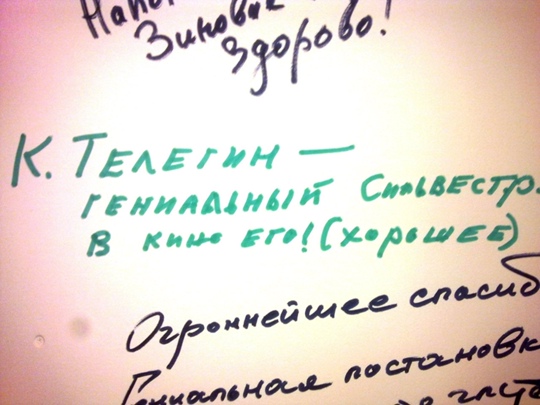 Зиновий
Здорово!
К. ТЕЛЕГИН —
ГЕНИАЛЬНЫЙ СИЛЬВЕСТР.
В КИНО ЕГО! (ХОРОШЕЕ)
Огромнейшее спасиб
Гениальная постановк